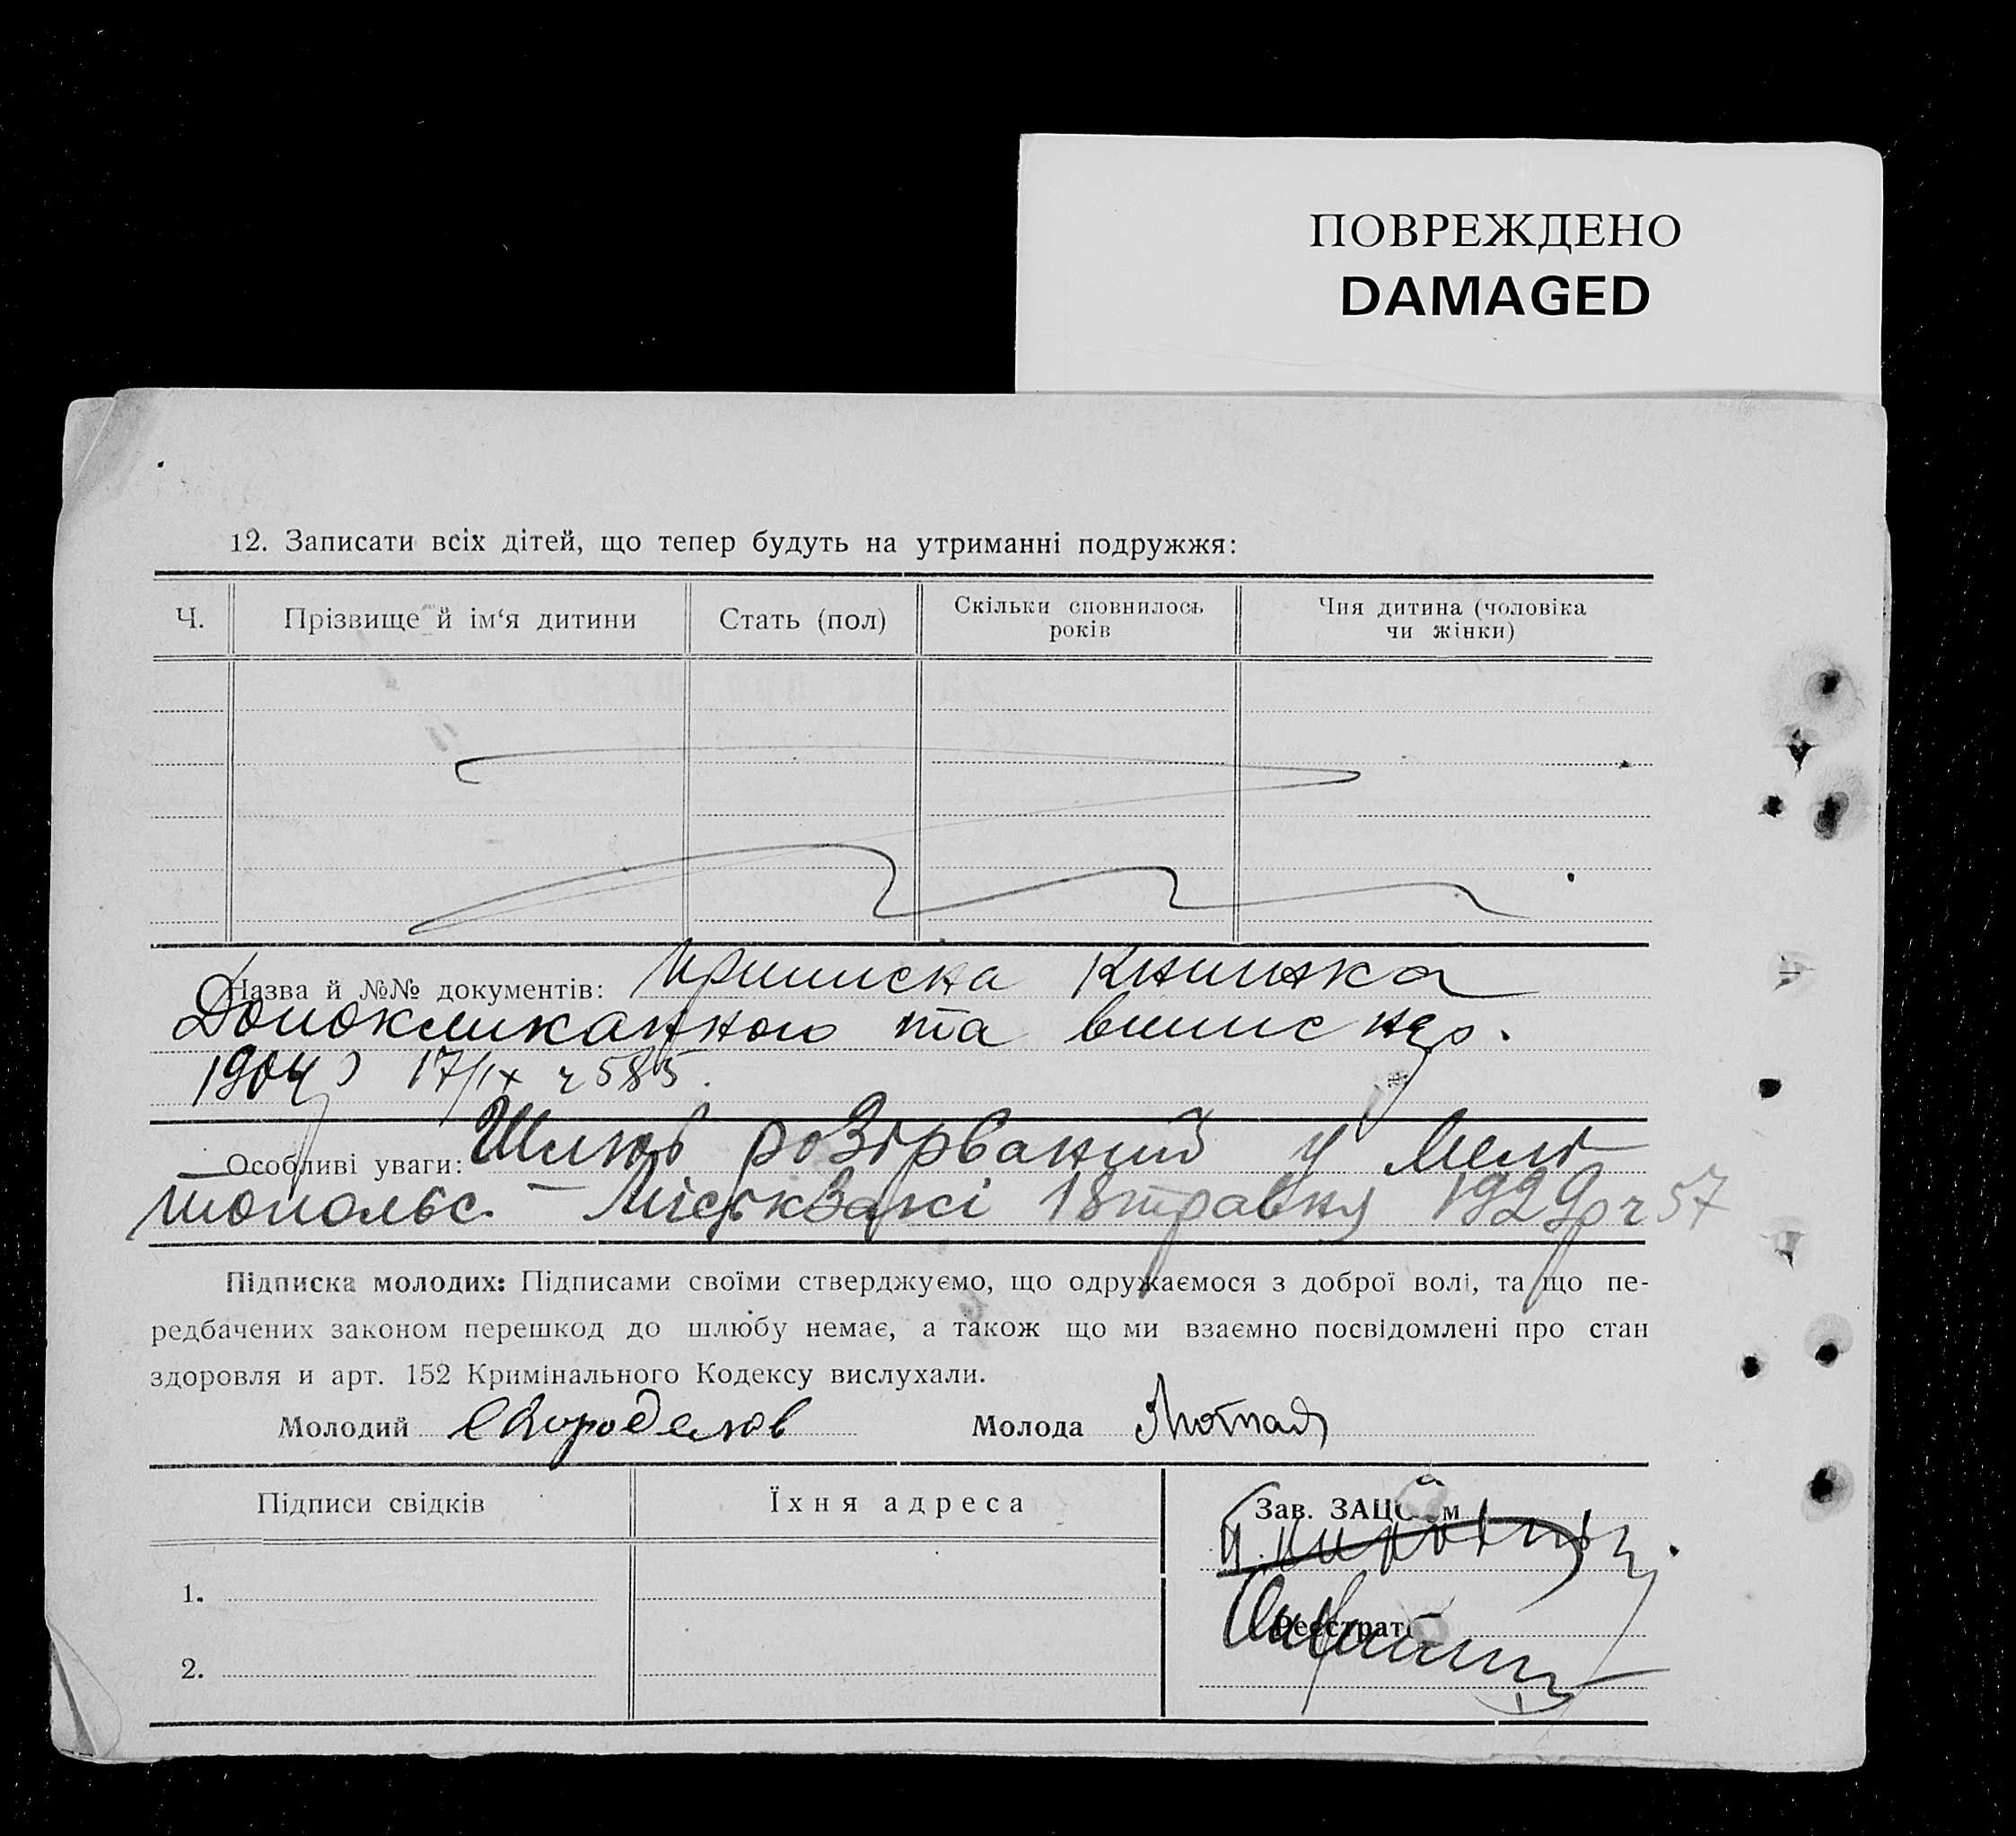 ПОВРЕЖДЕНО
DAMAGED
12. Записати всіх дітей, що тепер будуть на утриманні подружжя:
Ч. Прізвище й ім‘я дитини Стать (пол) Скільки сповнилось років Чия дитина (чоловіка чи жінки)
Назва й №№ документів: Приписна книжка
Допокликанного та випис нар.
1904 р 17/IX ч 585.
Особливі уваги: Шлюб розірваний у Мелі
топольс. – 18 травня 1929р ч 57
Підписка молодих: Підписами своїми стверджуємо, що одружаємося з доброї волі, та що пе-
редбачених законом перешкод до шлюбу немає, а також що ми взаємно посвідомлені про стан
здоровля и арт. 152 Кримінального Кодексу вислухали.
Молодий Молода
Підписи свідків Їхня адреса Зав. ЗАЦС‘ом
1.
Реєстрат
2.